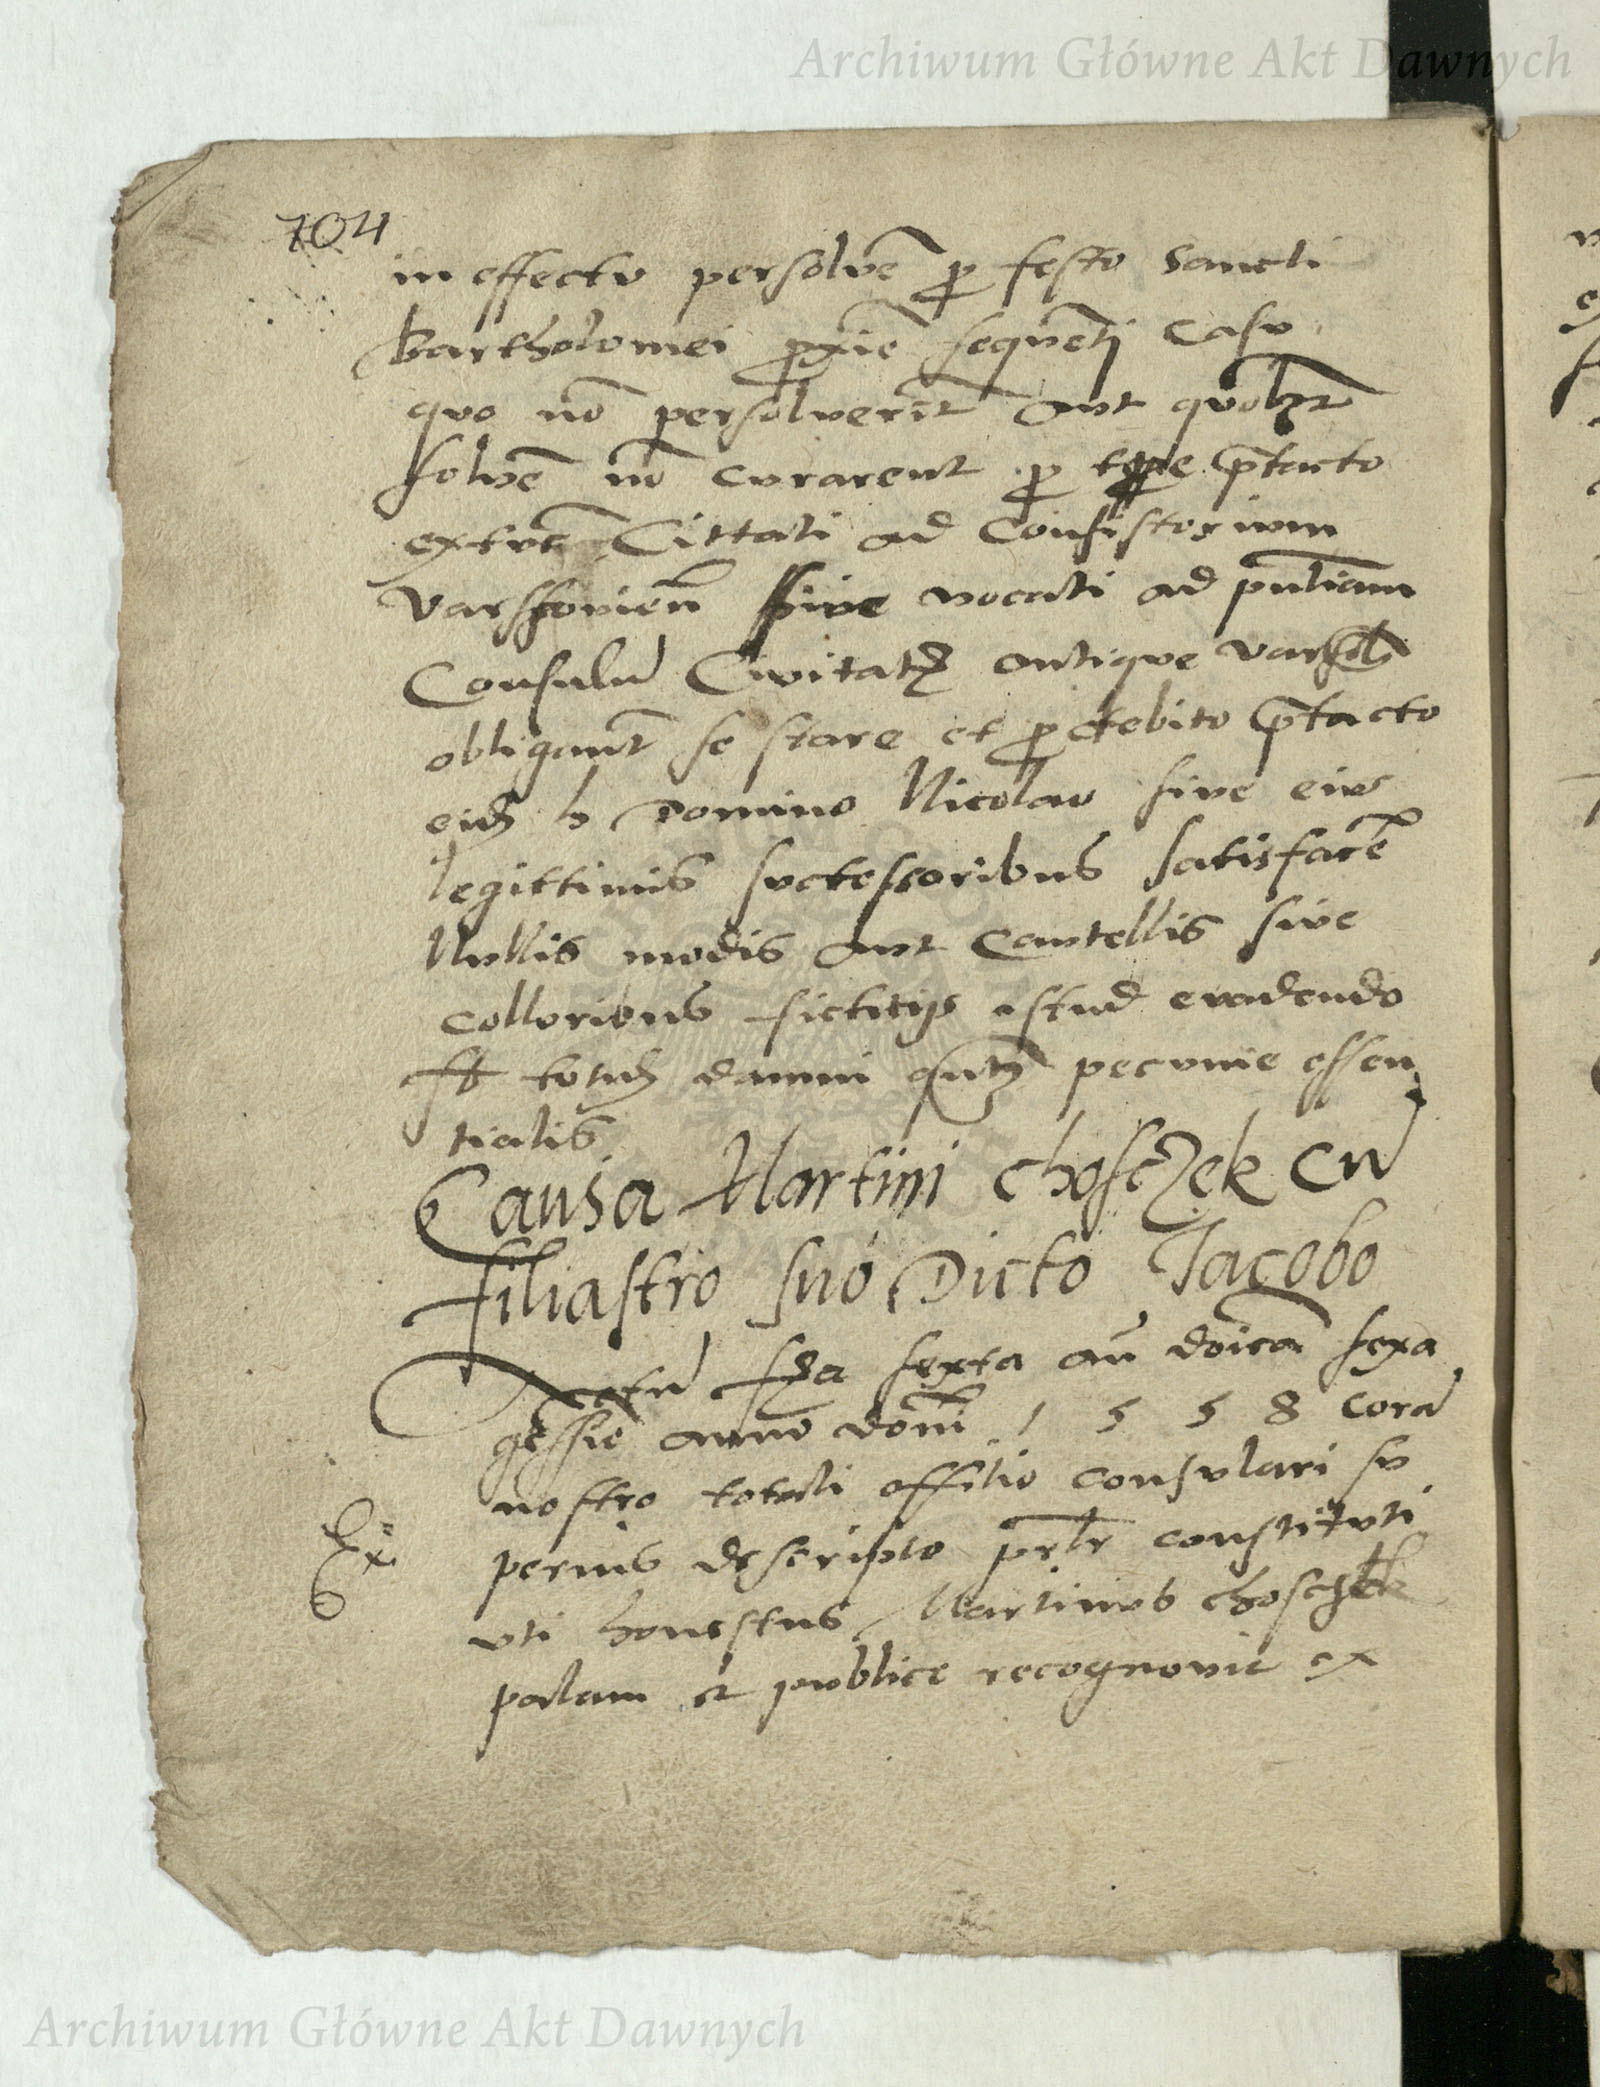 Archiwum Główne Akt Dawnych
704
in effectu persolvē p festo Sancti
Bartholomei proxīe sequētj Casu
quo nō persolverīt Aut
solvē nō curarent p tpe p̄tacto
extūc Cittati ad Consistorium
Varschovieñ sive vocati ad pn̄tiam
Consulū Civitatꝫ Antique Varsch
obligaūt se stare et p debito p̄tacto
eidꝫ h Domino Nicolao sive eius
legittimis suctessoribus satisfacē
Nullis modis Aut Cautellis sive
colloribus fictitijs istud evadendo
totidꝫ damni qn̄tꝫ pecunie essen
tialis
Causa Martini Chosczek Cū
filiastro suo Dicto Jacobo
Actū fꝫa sexta añ doīcā sexa
gessie anno domi 1 5 5 8 Corā
nostro totali offitio consulari su
perius descripto prlr constituti
uti honestus Martinus Choschek
palam et publice recognovit ex
Ex
Archiwum Główne Akt Dawnych